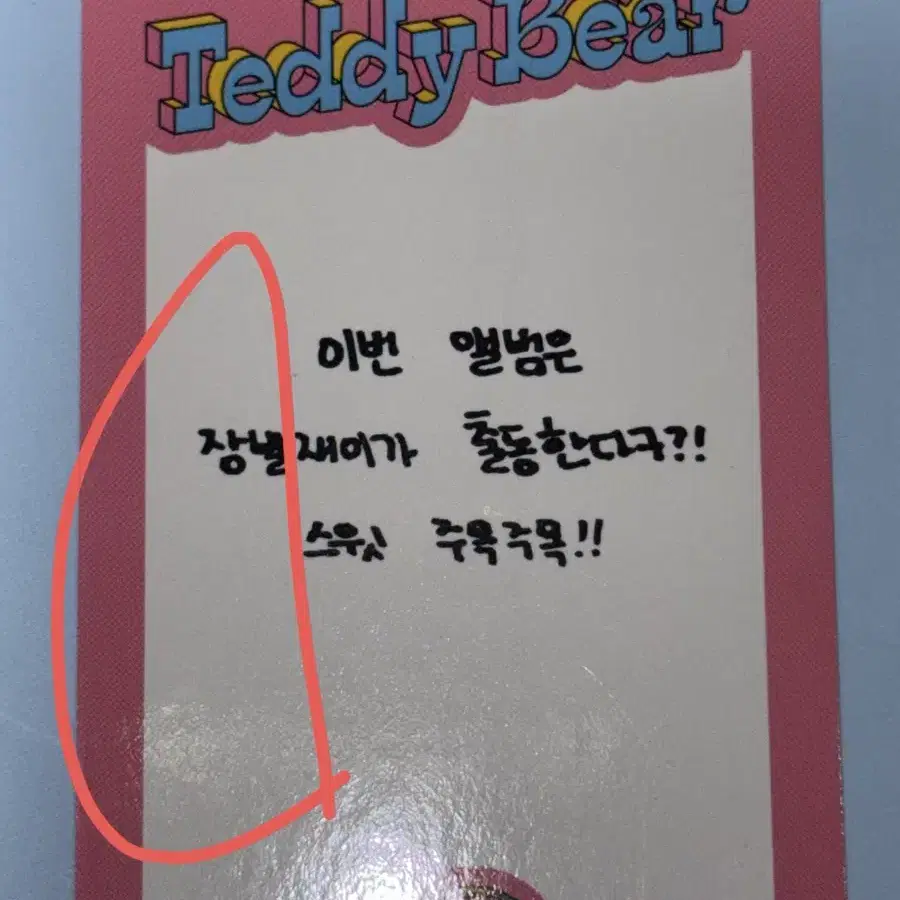 Teddy Bear
이번 앨범은
장별재이가 출동한다구?!
스윗 주목주목!!